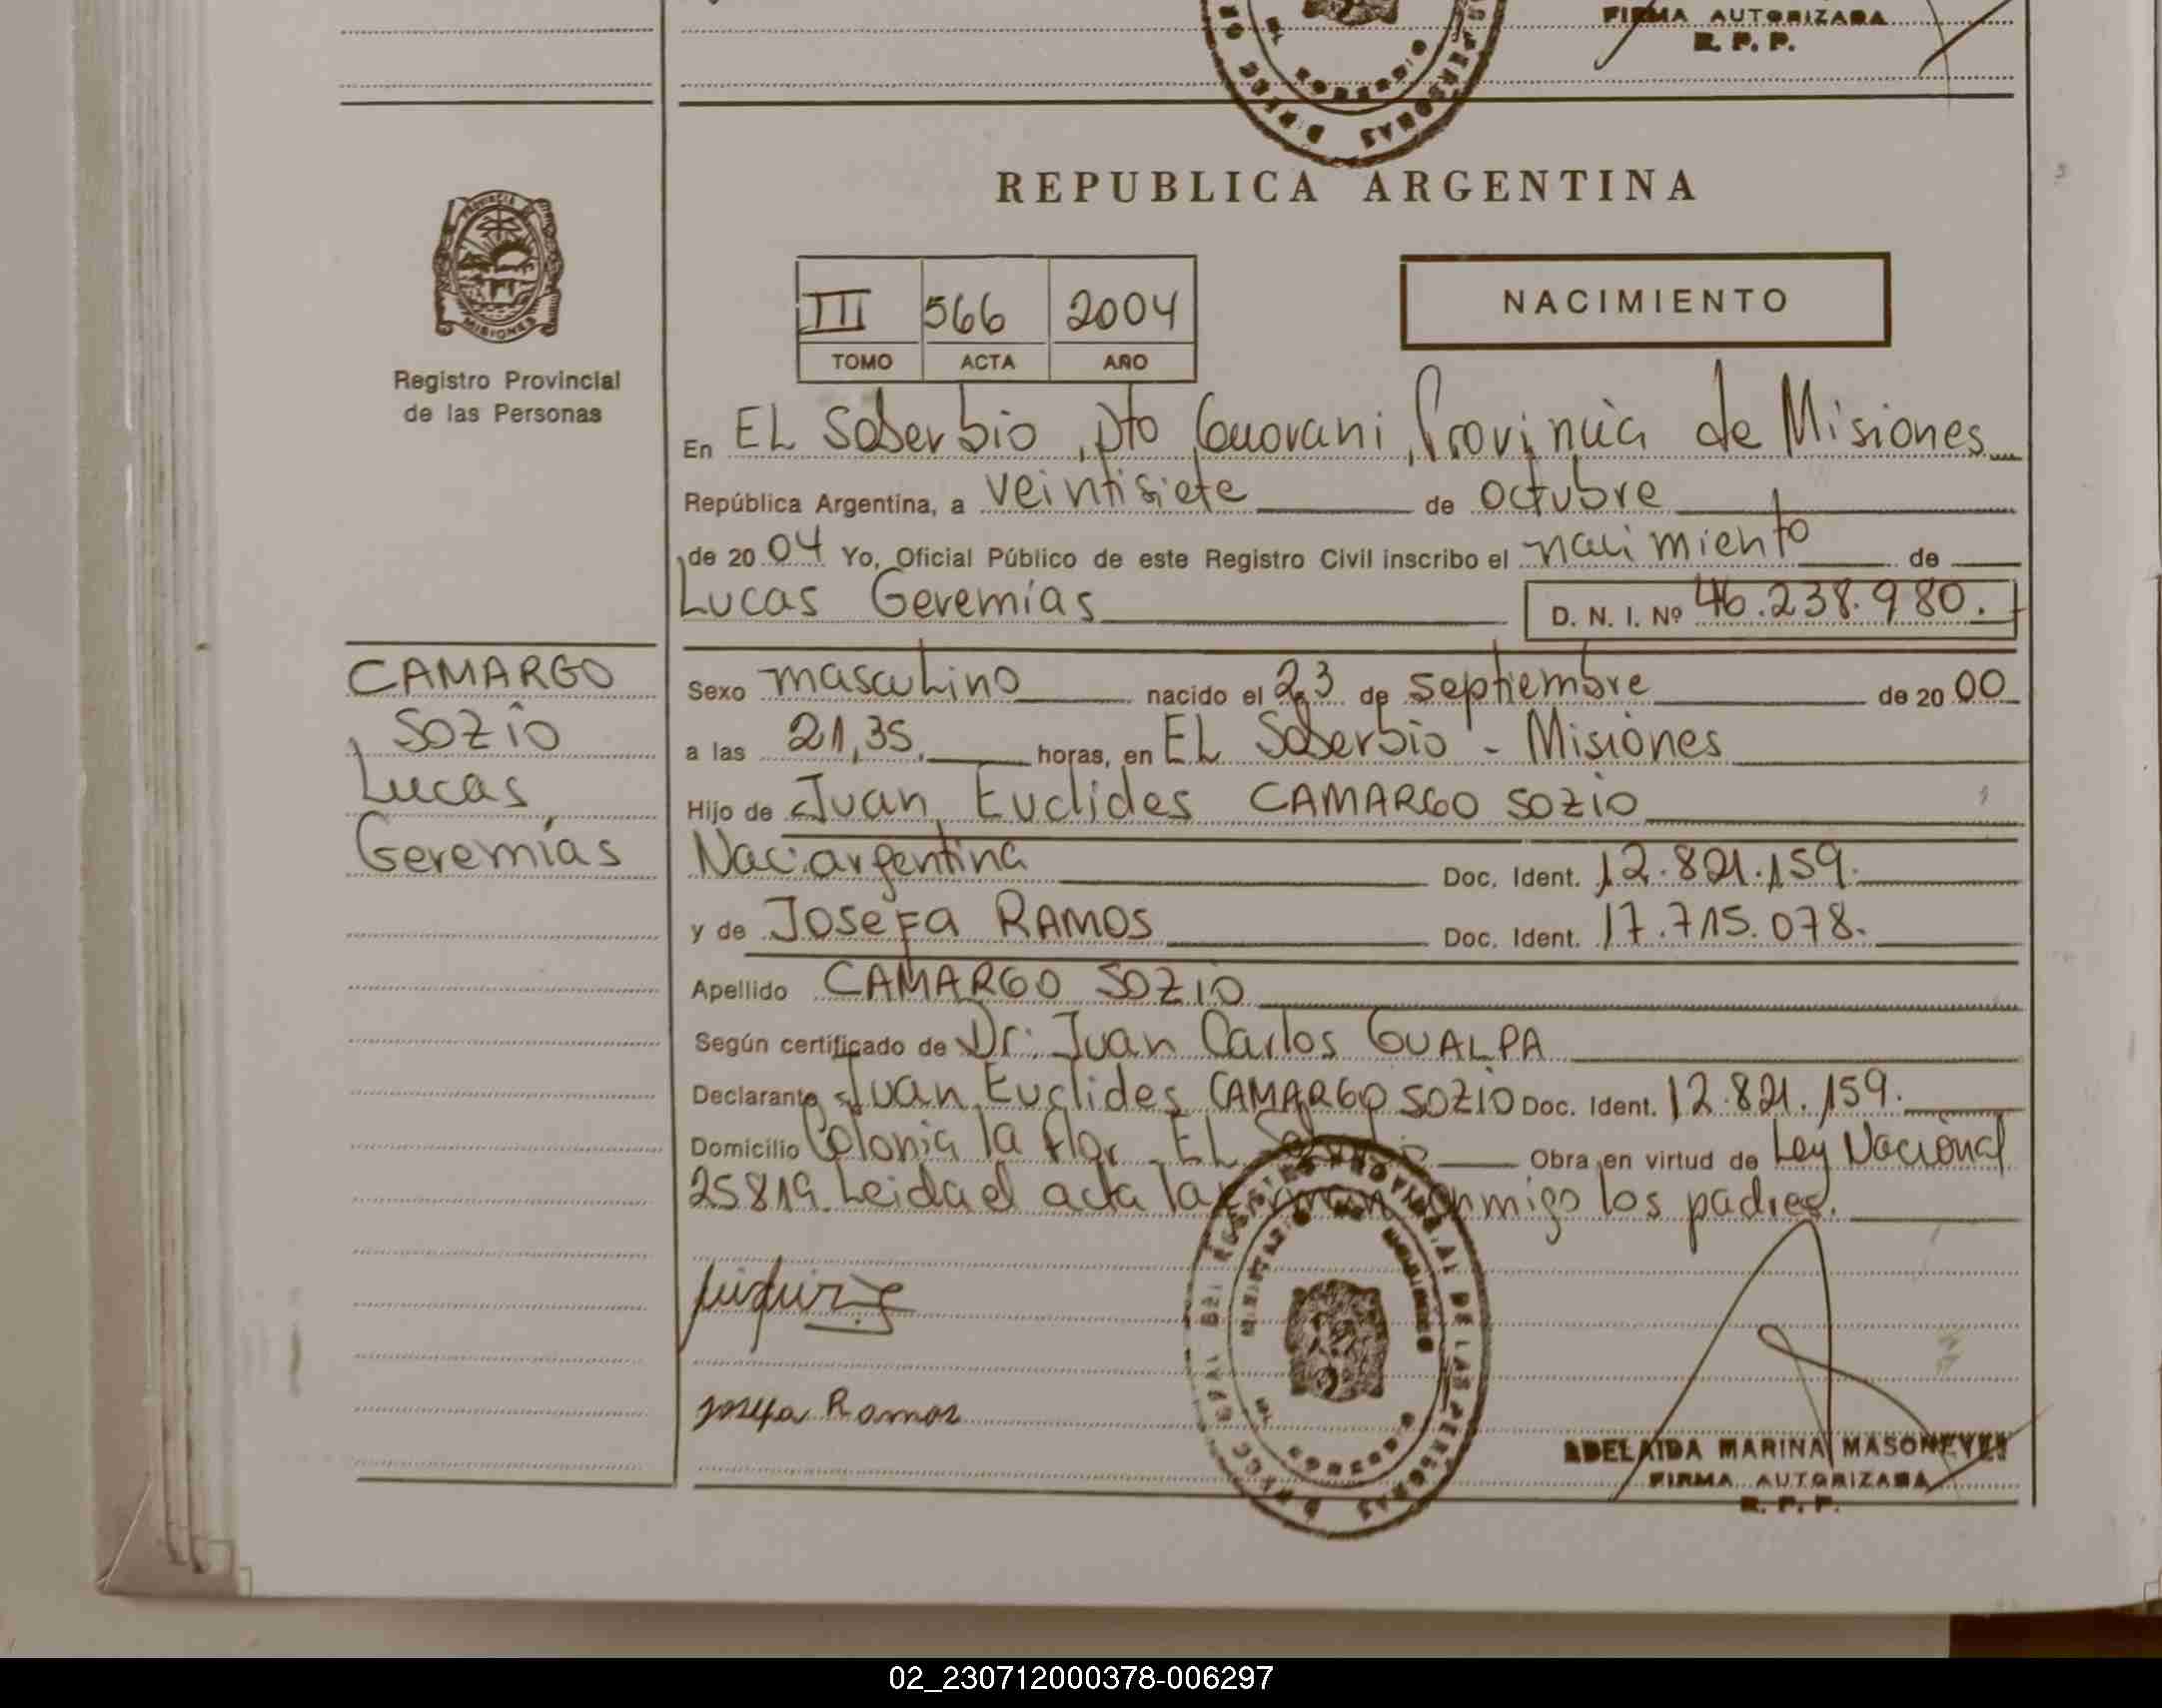 FIRMA AUTORIZADA
R. P. P.
REPUBLICA ARGENTINA
PROVINCIA DE
MISIONES
Registro Provincial
de las Personas
III 566 2004
TOMO ACTA AÑO
NACIMIENTO
En EL Soberbio, Dto Guarani, Provincia de Misiones
República Argentina, a veintisiete de octubre
de 20 04 Yo, Oficial Público de este Registro Civil inscribo el nacimiento de
Lucas Geremías D. N. I. Nº 46.238.980.
CAMARGO
SOZIO
Lucas
Geremías
Sexo masculino nacido el 23 de septiembre de 20 00
a las 21,35. horas, en EL Soberbio - Misiones
Hijo de Juan Euclides CAMARGO SOZIO
Nac: argentina Doc. Ident. 12.821.159.
y de Josefa RAMOS Doc. Ident. 17.715.078.
Apellido CAMARGO SOZIO
Según certificado de Dr: Juan Carlos GUALPA
Declarante Juan Euclides CAMARGO SOZIO Doc. Ident. 12.821.159.
Domicilio Colonia la flor - EL Soberbio Obra en virtud de Ley Nacional
25819. Leida el acta la firman conmigo los padres.
Josefa Ramos
ADELAIDA MARINA MASONEYES
FIRMA AUTORIZADA
R. P. P.
02_230712000378-006297